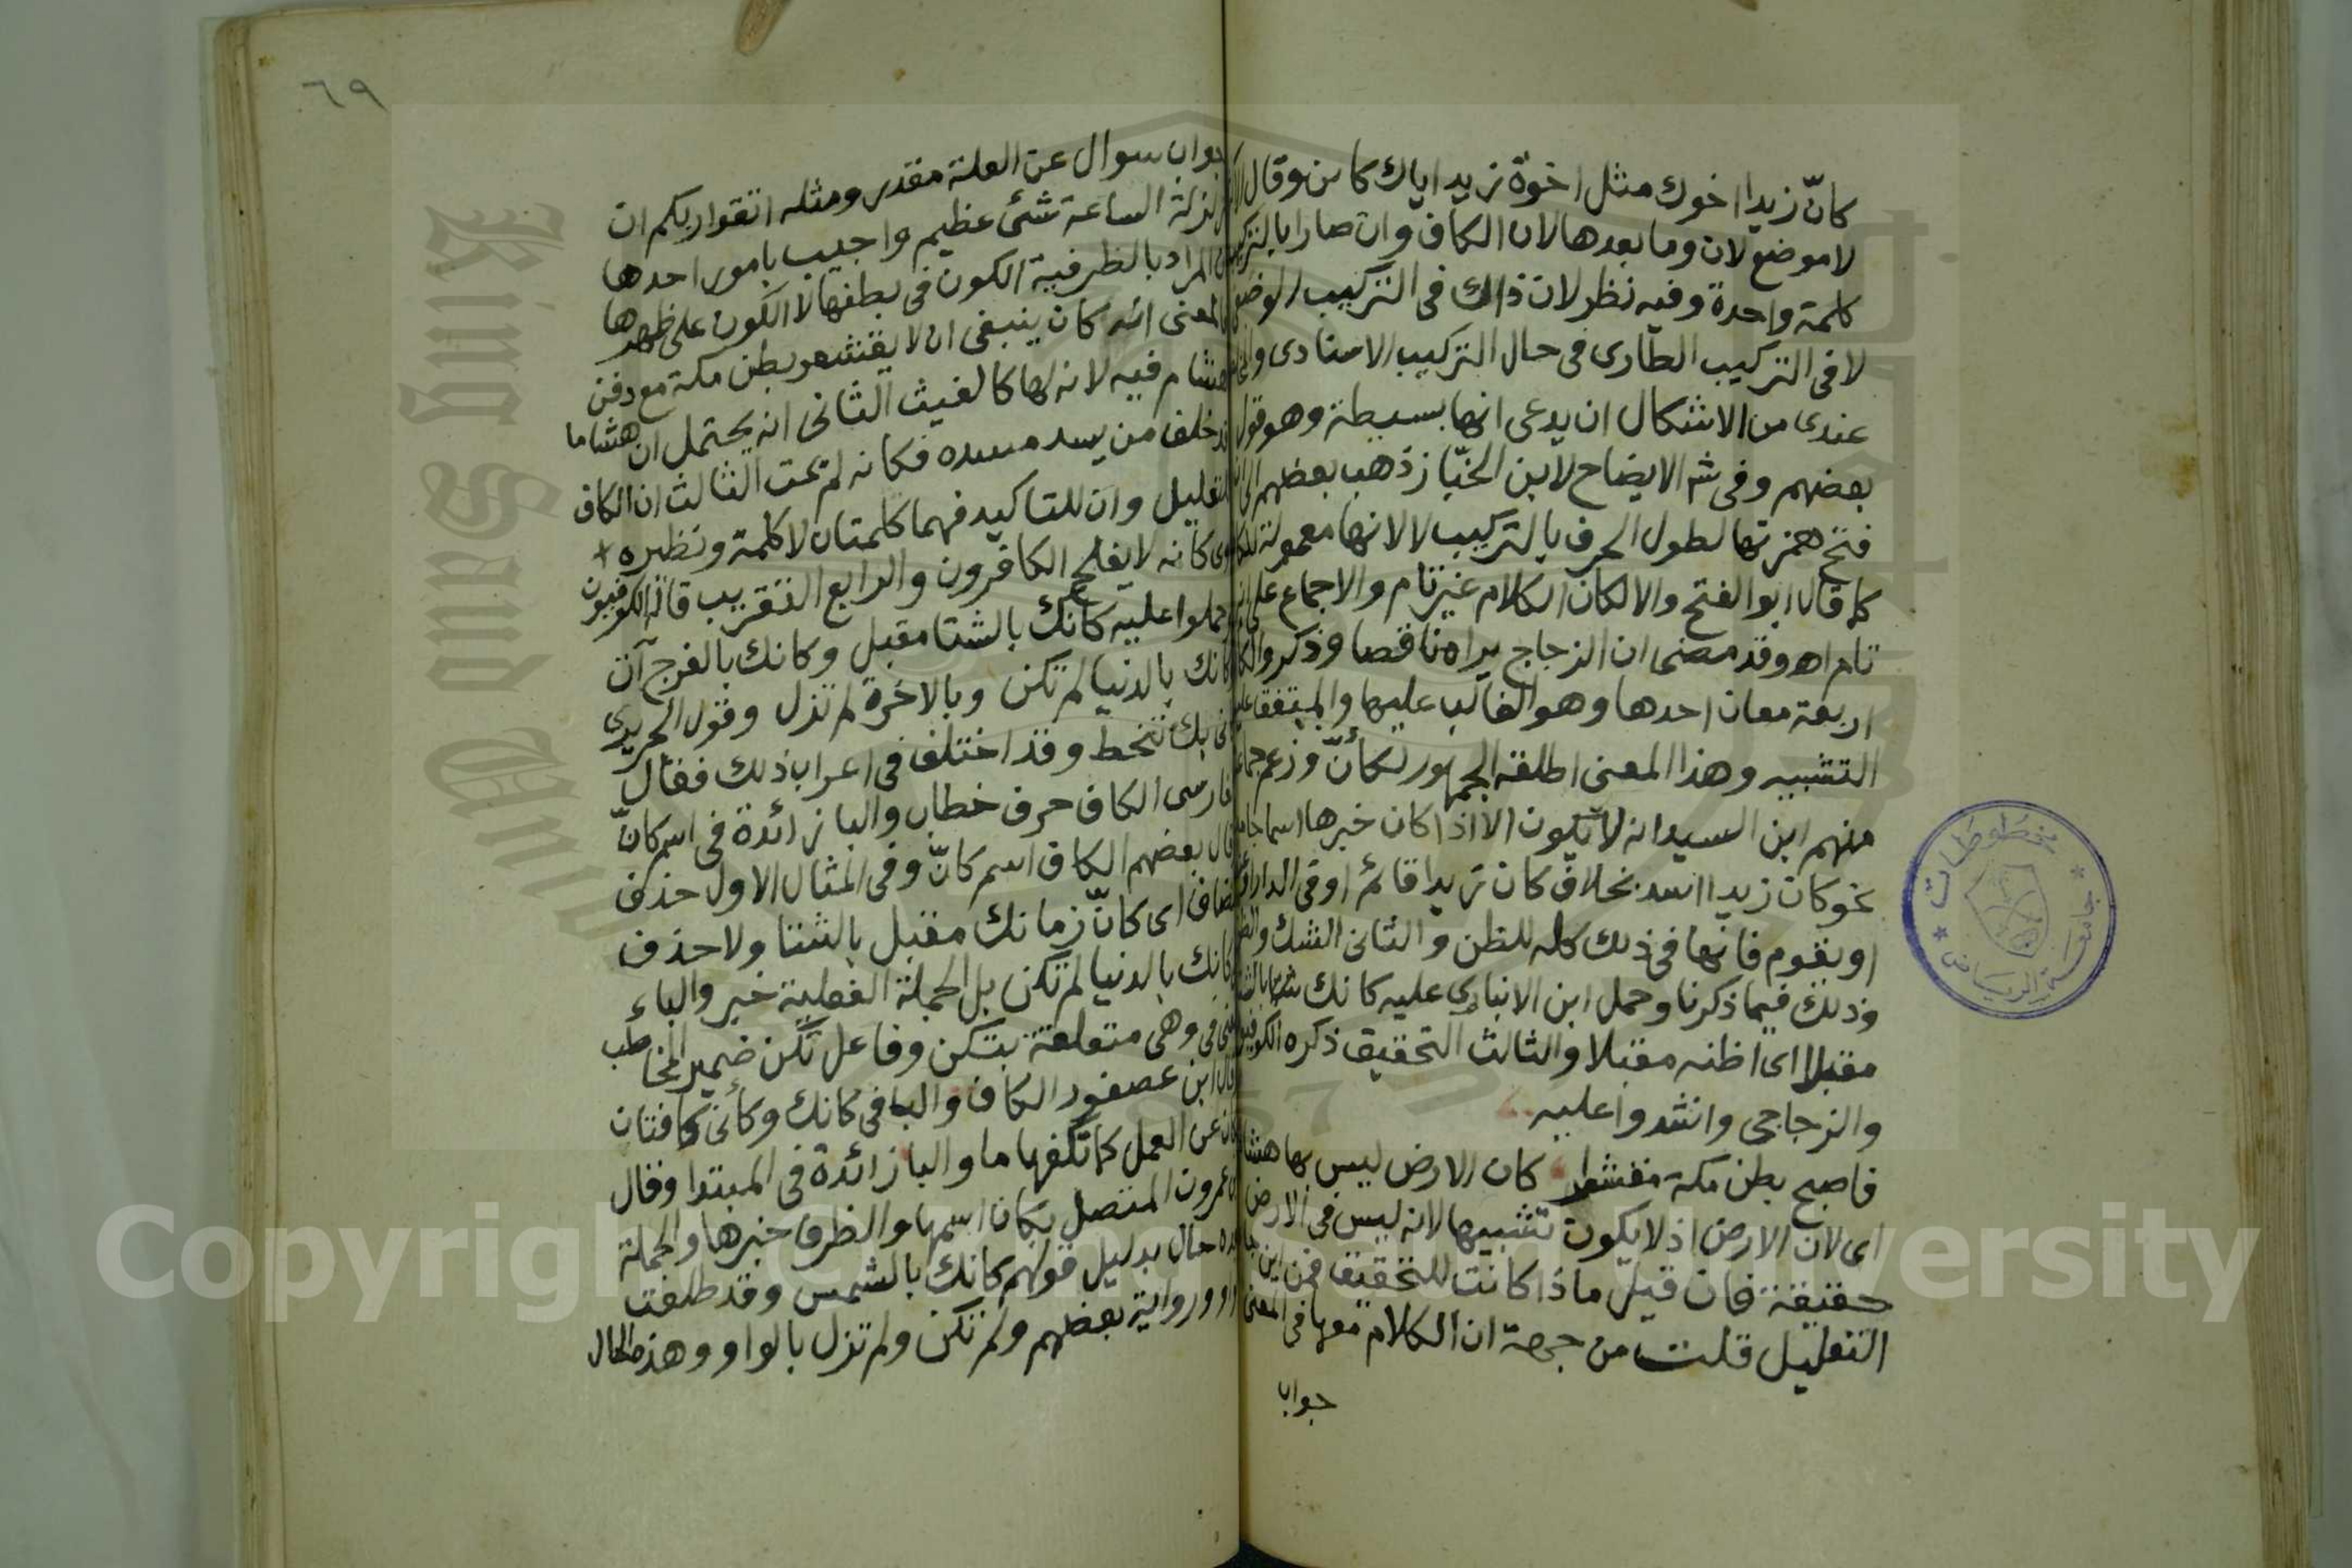 كانّ زيدا اخوك مثل اخوّة زيد اياك كاين وقال
لا موضع لان وما بعدها لان الكاف وان صارا بالتركيب
كلمة واحدة وفيه نظر لان ذاك فى التركيب الوضعى
لا فى التركيب الطارى فى حال التركيب الاسنادى
عندى من الاشكال ان يدعى انها بسيطة وهو قول
بعضهم وفى شر الايضاح لابن الخبّاز ذهب بعضهم الى ان
فتح همزتها لطول الحرف بالتركيب لا لانها معمولة للكاف
كما قال ابو الفتح والا لكان الكلام غير تام والاجماع على انه
تام اه وقد مضى ان الزجاج يراه ناقصا وذكروا لكان
اربعة معان احدها وهو الغالب عليها والمتفق عليه
التشبيه وهذا المعنى اطلقه الجمهور لكأنّ وزعم جماعة
منهم ابن السيد انه لا تكون الا اذا كان خبرها اسما جامدا
نحو كان زيدا اسد بخلاف كان زيدا قائم او فى الدار او
او يقوم فانها فى ذلك كله للظن والثانى الشك والظن
وذلك فيما ذكرنا وحمل ابن الانبارى عليه كانك بالشتا
مقبلا اى اظنه مقبلا والثالث التحقيق ذكره الكوفيون
والزجاجى وانشدوا عليه
فاصبح بطن مكة مقشعرا كان الارض ليس بها هشام
اى لان الارض اذ لا يكون تشبيها لانه ليس فى الارض
حقيقة فان قيل ماذا كانت للتحقيق فمن اين جا
التعليل قلت من جهة ان الكلام معها فى المعنى
جواب
٦٩
جواب سوال عن العلة مقدر ومثله اتقوا ربكم ان
زلزلة الساعة شئ عظيم واجيب بامور احدها
ان المراد بالظرفية الكون فى بطنها لا الكون على ظهرها
فالمعنى انه كان ينبغى ان لا يقشعر بطن مكة مع دفن
هشام فيه لانه لها كالغيث الثانى انه يحتمل ان هشاما
قد خلف من يسد مسده فكانه لم يمت الثالث ان الكاف
لتعليل وان للتاكيد فهما كلمتان لا كلمة ونظيره
وى كانه لا يفلح الكافرون والرابع التقريب قاله الكوفيون
وحملوا عليه كانك بالشتا مقبل وكانك بالفرج آت
وكانك بالدنيا لم تكن وبالاخرة لم تزل وقول الحريرى
كانى بك تنحط وقد اختلف فى اعراب ذلك فقال
الفارسى الكاف حرف خطاب والبا زائدة فى اسم كانّ
وقال بعضهم الكاف اسم كانّ وفى المثال الاول حذف
مضاف اى كانّ زمانك مقبل بالشتا ولا حذف
فى كانك بالدنيا لم تكن بل الجملة الفعلية خبر والباء
بمعنى فى وهى متعلقة بتكن وفاعل تكن ضمير المخاطب
وقال ابن عصفور الكاف والبا فى كانك وكأنى كافتان
لكان عن العمل كما تكفها ما والبا زائدة فى المبتدا وقال
ابن عمرون المتصل بكان اسمها والظرف خبرها والجملة
بعده حال بدليل قولهم كانك بالشمس وقد طلعت
بالواو ورواية بعضهم ولم تكن ولم تزل بالواو وهذه الحال
مخطوطات
جامعة الرياض
King Saud University
Copyright © King Saud University